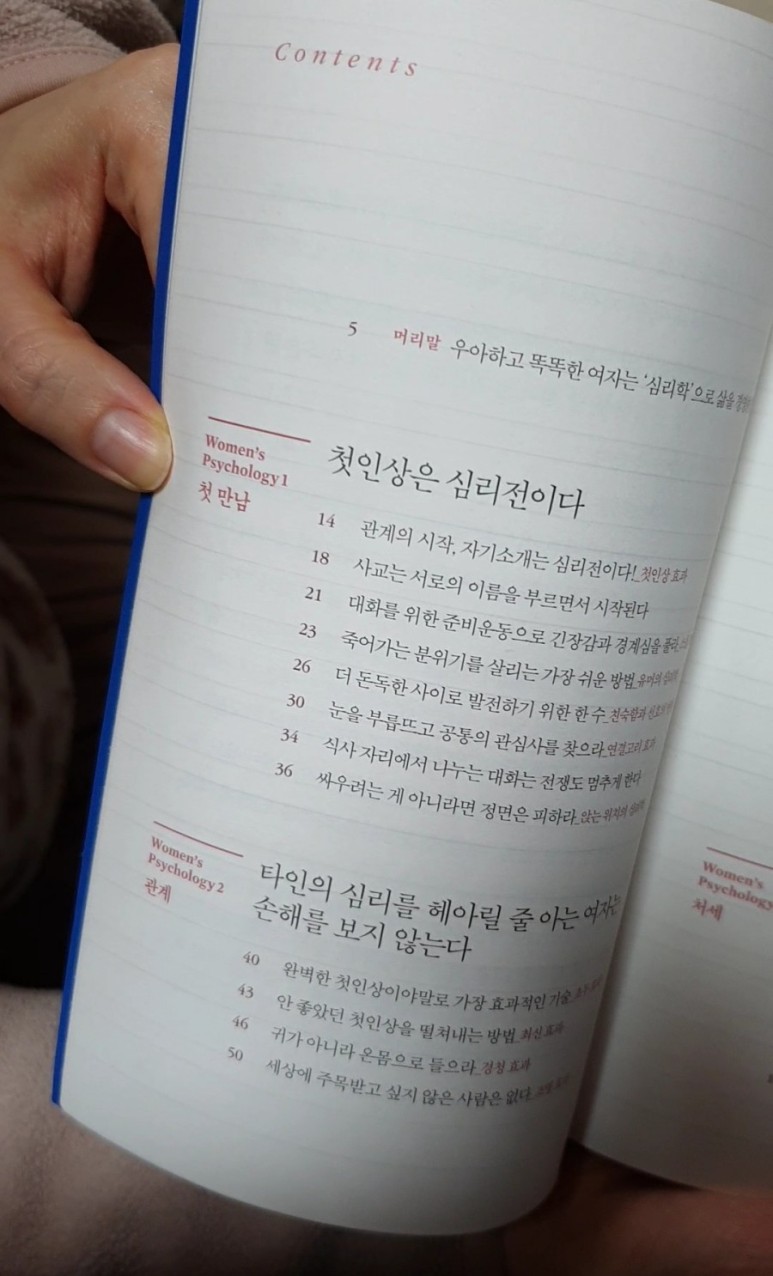 Contents
5 머리말 우아하고 똑똑한 여자는 '심리학'으로 삶을
Women's
Psychology 1
첫 만남
첫인상은 심리전이다
14 관계의 시작, 자기소개는 심리전이다!_첫인상 효과
18 사교는 서로의 이름을 부르면서 시작된다
21 대화를 위한 준비운동으로 긴장감과 경계심을 풀라
23 죽어가는 분위기를 살리는 가장 쉬운 방법_유머의 심리학
26 더 돈독한 사이로 발전하기 위한 한 수_친숙함과
30 눈을 부릅뜨고 공통의 관심사를 찾으라_연결고리 효과
34 식사 자리에서 나누는 대화는 전쟁도 멈추게 한다
36 싸우려는 게 아니라면 정면은 피하라_앉는 위치의
Women's
Psychology 2
관계
타인의 심리를 헤아릴 줄 아는 여자는
손해를 보지 않는다
40 완벽한 첫인상이야말로 가장 효과적인 기술
43 안 좋았던 첫인상을 떨쳐내는 방법_최신 효과
46 귀가 아니라 온몸으로 들으라_경청 효과
50 세상에 주목받고 싶지 않은 사람은 없다
Women's
Psychology
처세